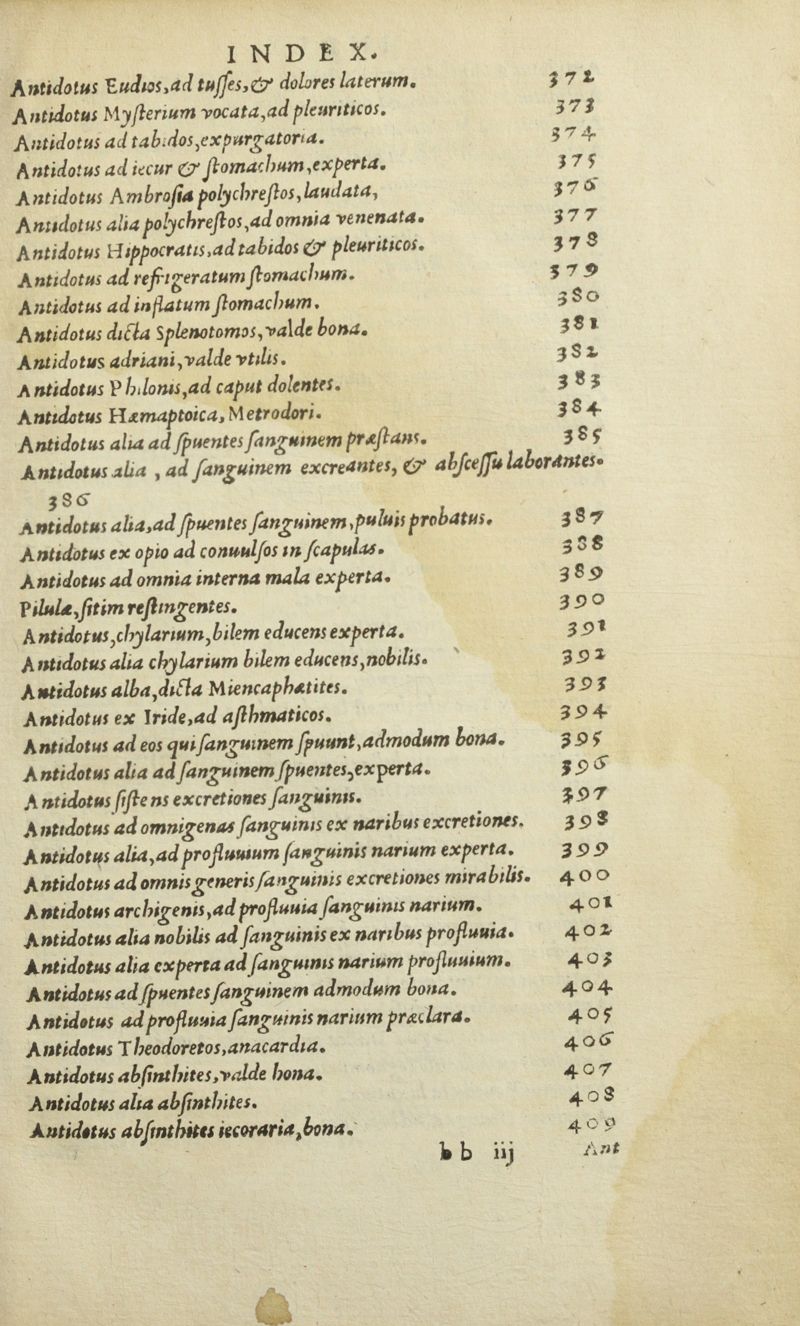 INDEX.
Antidotus Eudios, ad tusses, & dolores laterum. 372
Antidotus Mysterium vocata, ad pleuriticos. 373
Antidotus ad tabidos, expurgatoria. 374
Antidotus ad iecur & stomachum, experta. 375
Antidotus Ambrosia polychrestos, laudata, 376
Antidotus alia polychrestos, ad omnia venenata. 377
Antidotus Hippocratis, ad tabidos & pleuriticos. 378
Antidotus ad refrigeratum stomachum. 379
Antidotus ad inflatum stomachum. 380
Antidotus dicta Splenotomos, valde bona. 381
Antidotus adriani, valde vtilis. 382
Antidotus Philonis, ad caput dolentes. 383
Antidotus Hæmaptoica, Metrodori. 384
Antidotus alia ad spuentes sanguinem præstans. 385
Antidotus alia , ad sanguinem excreantes, & abscessu laborantes.
386
Antidotus alia, ad spuentes sanguinem, puluis probatus. 387
Antidotus ex opio ad conuulsos in scapulas. 388
Antidotus ad omnia interna mala experta. 389
Pilulæ, sitim restingentes. 390
Antidotus, chylarium, bilem educens experta. 391
Antidotus alia chylarium bilem educens, nobilis. 392
Antidotus alba, dicta Miencaphatites. 393
Antidotus ex Iride, ad asthmaticos. 394
Antidotus ad eos qui sanguinem spuunt, admodum bona. 395
Antidotus alia ad sanguinem spuentes, experta. 396
Antidotus sistens excretiones sanguinis. 397
Antidotus ad omnigenas sanguinis ex naribus excretiones. 398
Antidotus alia, ad profluuium sanguinis narium experta. 399
Antidotus ad omnis generis sanguinis excretiones mirabilis. 400
Antidotus archigenis, ad profluuia sanguinis narium. 401
Antidotus alia nobilis ad sanguinis ex naribus profluuia. 402
Antidotus alia experta ad sanguinis narium profluuium. 403
Antidotus ad spuentes sanguinem admodum bona. 404
Antidotus ad profluuia sanguinis narium præclara. 405
Antidotus Theodoretos, anacardia. 406
Antidotus absinthites, valde bona. 407
Antidotus alia absinthites. 408
Antidotus absinthites iecoraria, bona. 409
bb iij Ant